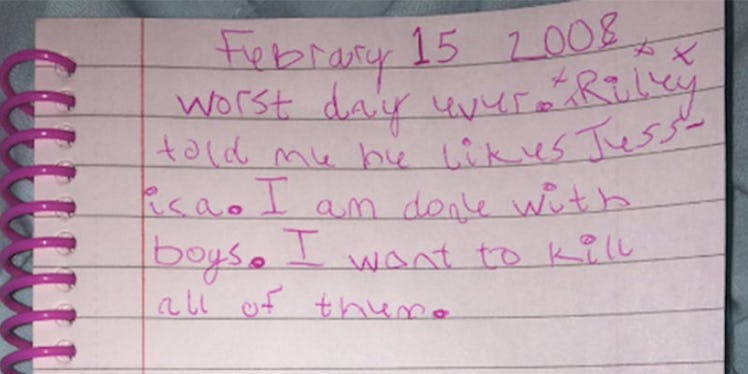 Febrary 15 2008
worst day ever. Riley
told me he likes Jess-
ica. I am done with
boys. I want to kill
all of them.